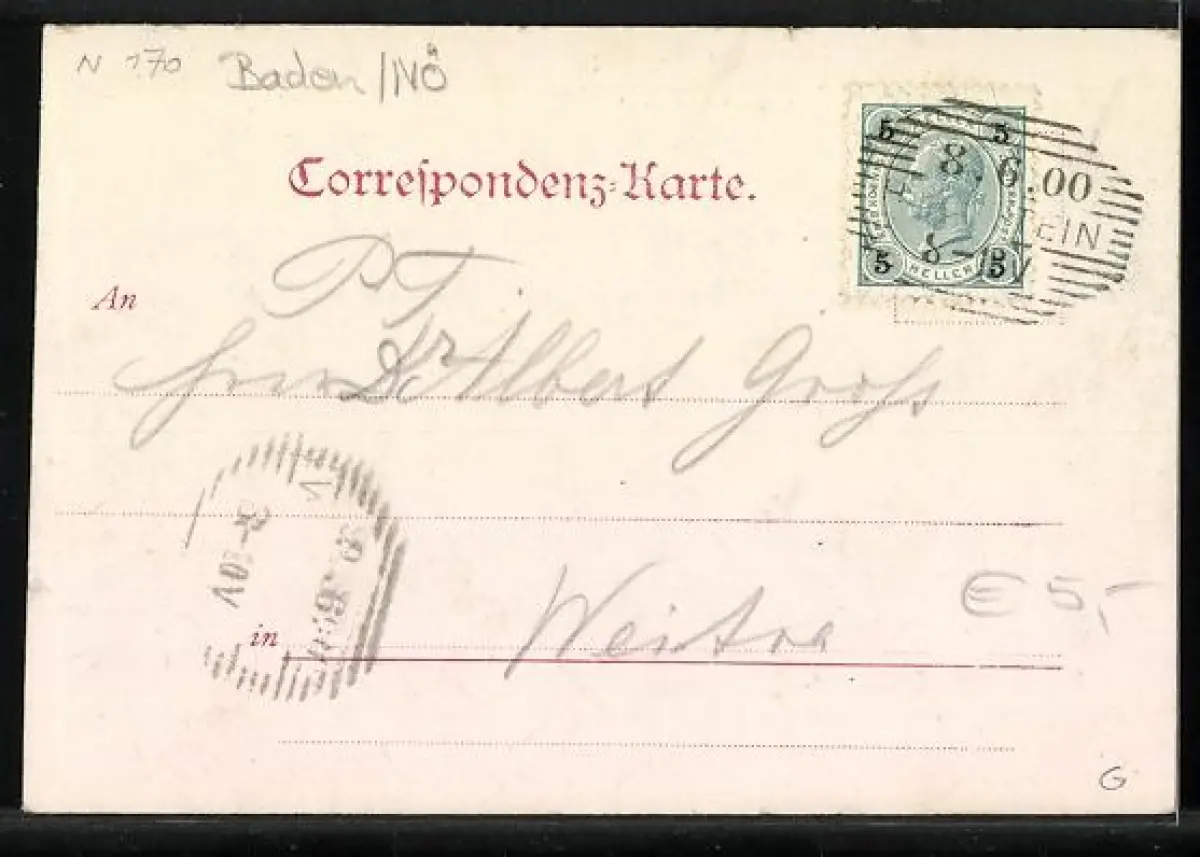 N 170 Baden/NÖ
5 HELLER 5
8.6.00
EIN
5 HELLER 5
Correſpondenz-Karte.
An
P T
Herrn Dr Albert Groſs
in
Weitra
€ 5,-
G